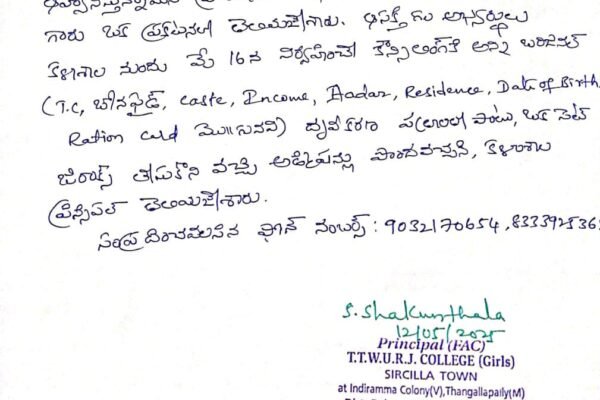 గారు ఒక ప్రకటనలో తెలియజేశారు. ఆసక్తి గల అభ్యర్థులు
కళాశాల నందు మే 16న నిర్వహించే కౌన్సిలింగ్‌కి అన్ని ఒరిజినల్
(T.C, బోనఫైడ్, Caste, Income, Aadar, Residence, Date of Birth,
Ration Card మొ॥నవి) ధృవీకరణ పత్రాలతో పాటు, ఒక సెట్
జిరాక్స్ తీసుకొని వచ్చి అడ్మిషన్లు పొందవచ్చని, కళాశాల
ప్రిన్సిపల్ తెలియజేశారు.
సంప్రదించవలసిన ఫోన్ నంబర్స్ : 9032170654, 833392536
S. Shakunthala
12/05/2025
Principal (FAC)
T.T.W.U.R.J. COLLEGE (Girls)
SIRCILLA TOWN
at Indiramma Colony(V),Thangallapally(M)